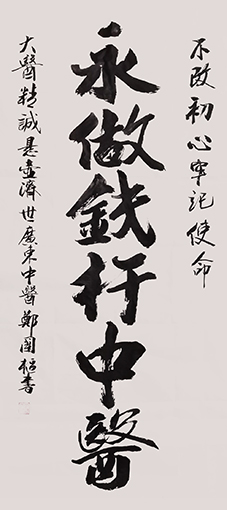 不改初心牢記使命
永做鉄杆中醫
大醫精誠悬壺濟世廣東中醫鄭國書